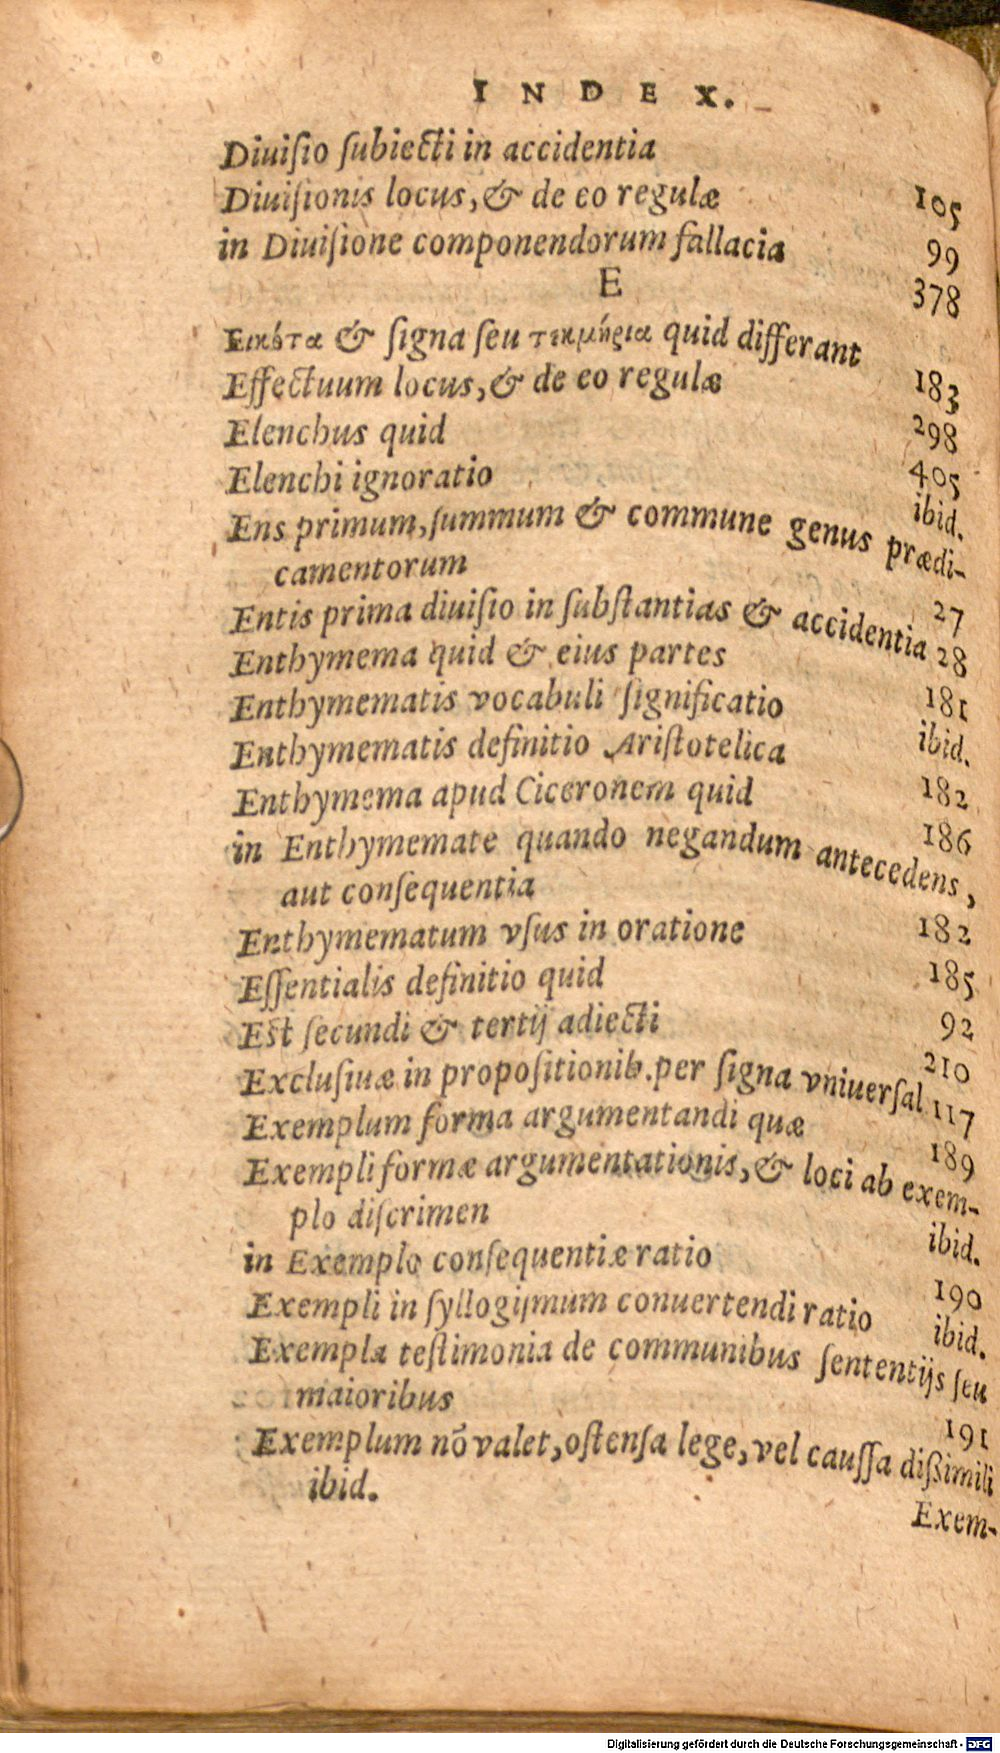 INDEX.
Diuiſio ſubiecti in accidentia 105
Diuiſionis locus, & de eo regulæ 99
in Diuiſione componendorum fallacia 378
E
Εικότα & ſigna ſeu τεκμήρια quid differant 183
Effectuum locus, & de eo regulæ 298
Elenchus quid 405
Elenchi ignoratio ibid.
Ens primum, ſummum & commune genus prædi-
camentorum 27
Entis prima diuiſio in ſubſtantias & accidentia 28
Enthymema quid & eius partes 181
Enthymematis vocabuli ſignificatio ibid.
Enthymematis definitio Ariſtotelica 182
Enthymema apud Ciceronem quid 186
in Enthymemate quando negandum antecedens,
aut conſequentia 182
Enthymematum vſus in oratione 185
Eſſentialis definitio quid 92
Eſt ſecundi & tertij adiecti 210
Excluſiuæ in propoſitionib. per ſigna vniuerſal 117
Exemplum forma argumentandi quæ 189
Exempli formæ argumentationis, & loci ab exem-
plo diſcrimen ibid.
in Exemplo conſequentiæ ratio 190
Exempli in ſyllogiſmum conuertendi ratio ibid.
Exempla teſtimonia de communibus ſententijs ſeu
maioribus 191
Exemplum nõ valet, oſtenſa lege, vel cauſſa dißimili
ibid.
Exem-
Digitalisierung gefördert durch die Deutsche Forschungsgemeinschaft - DFG